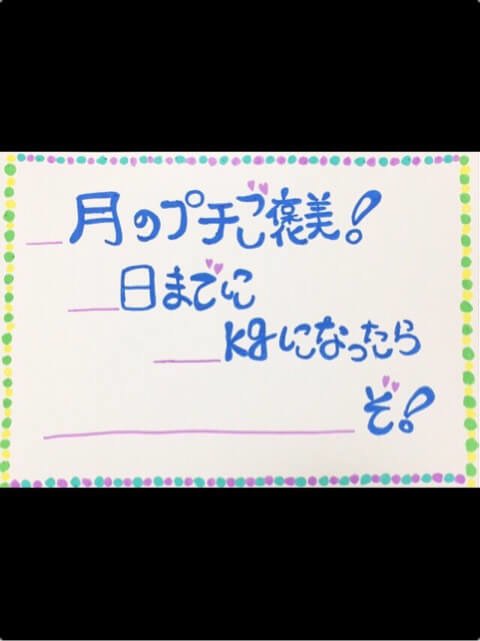 __月のプチご褒美!
__日までに
__kgになったら
____________ぞ!